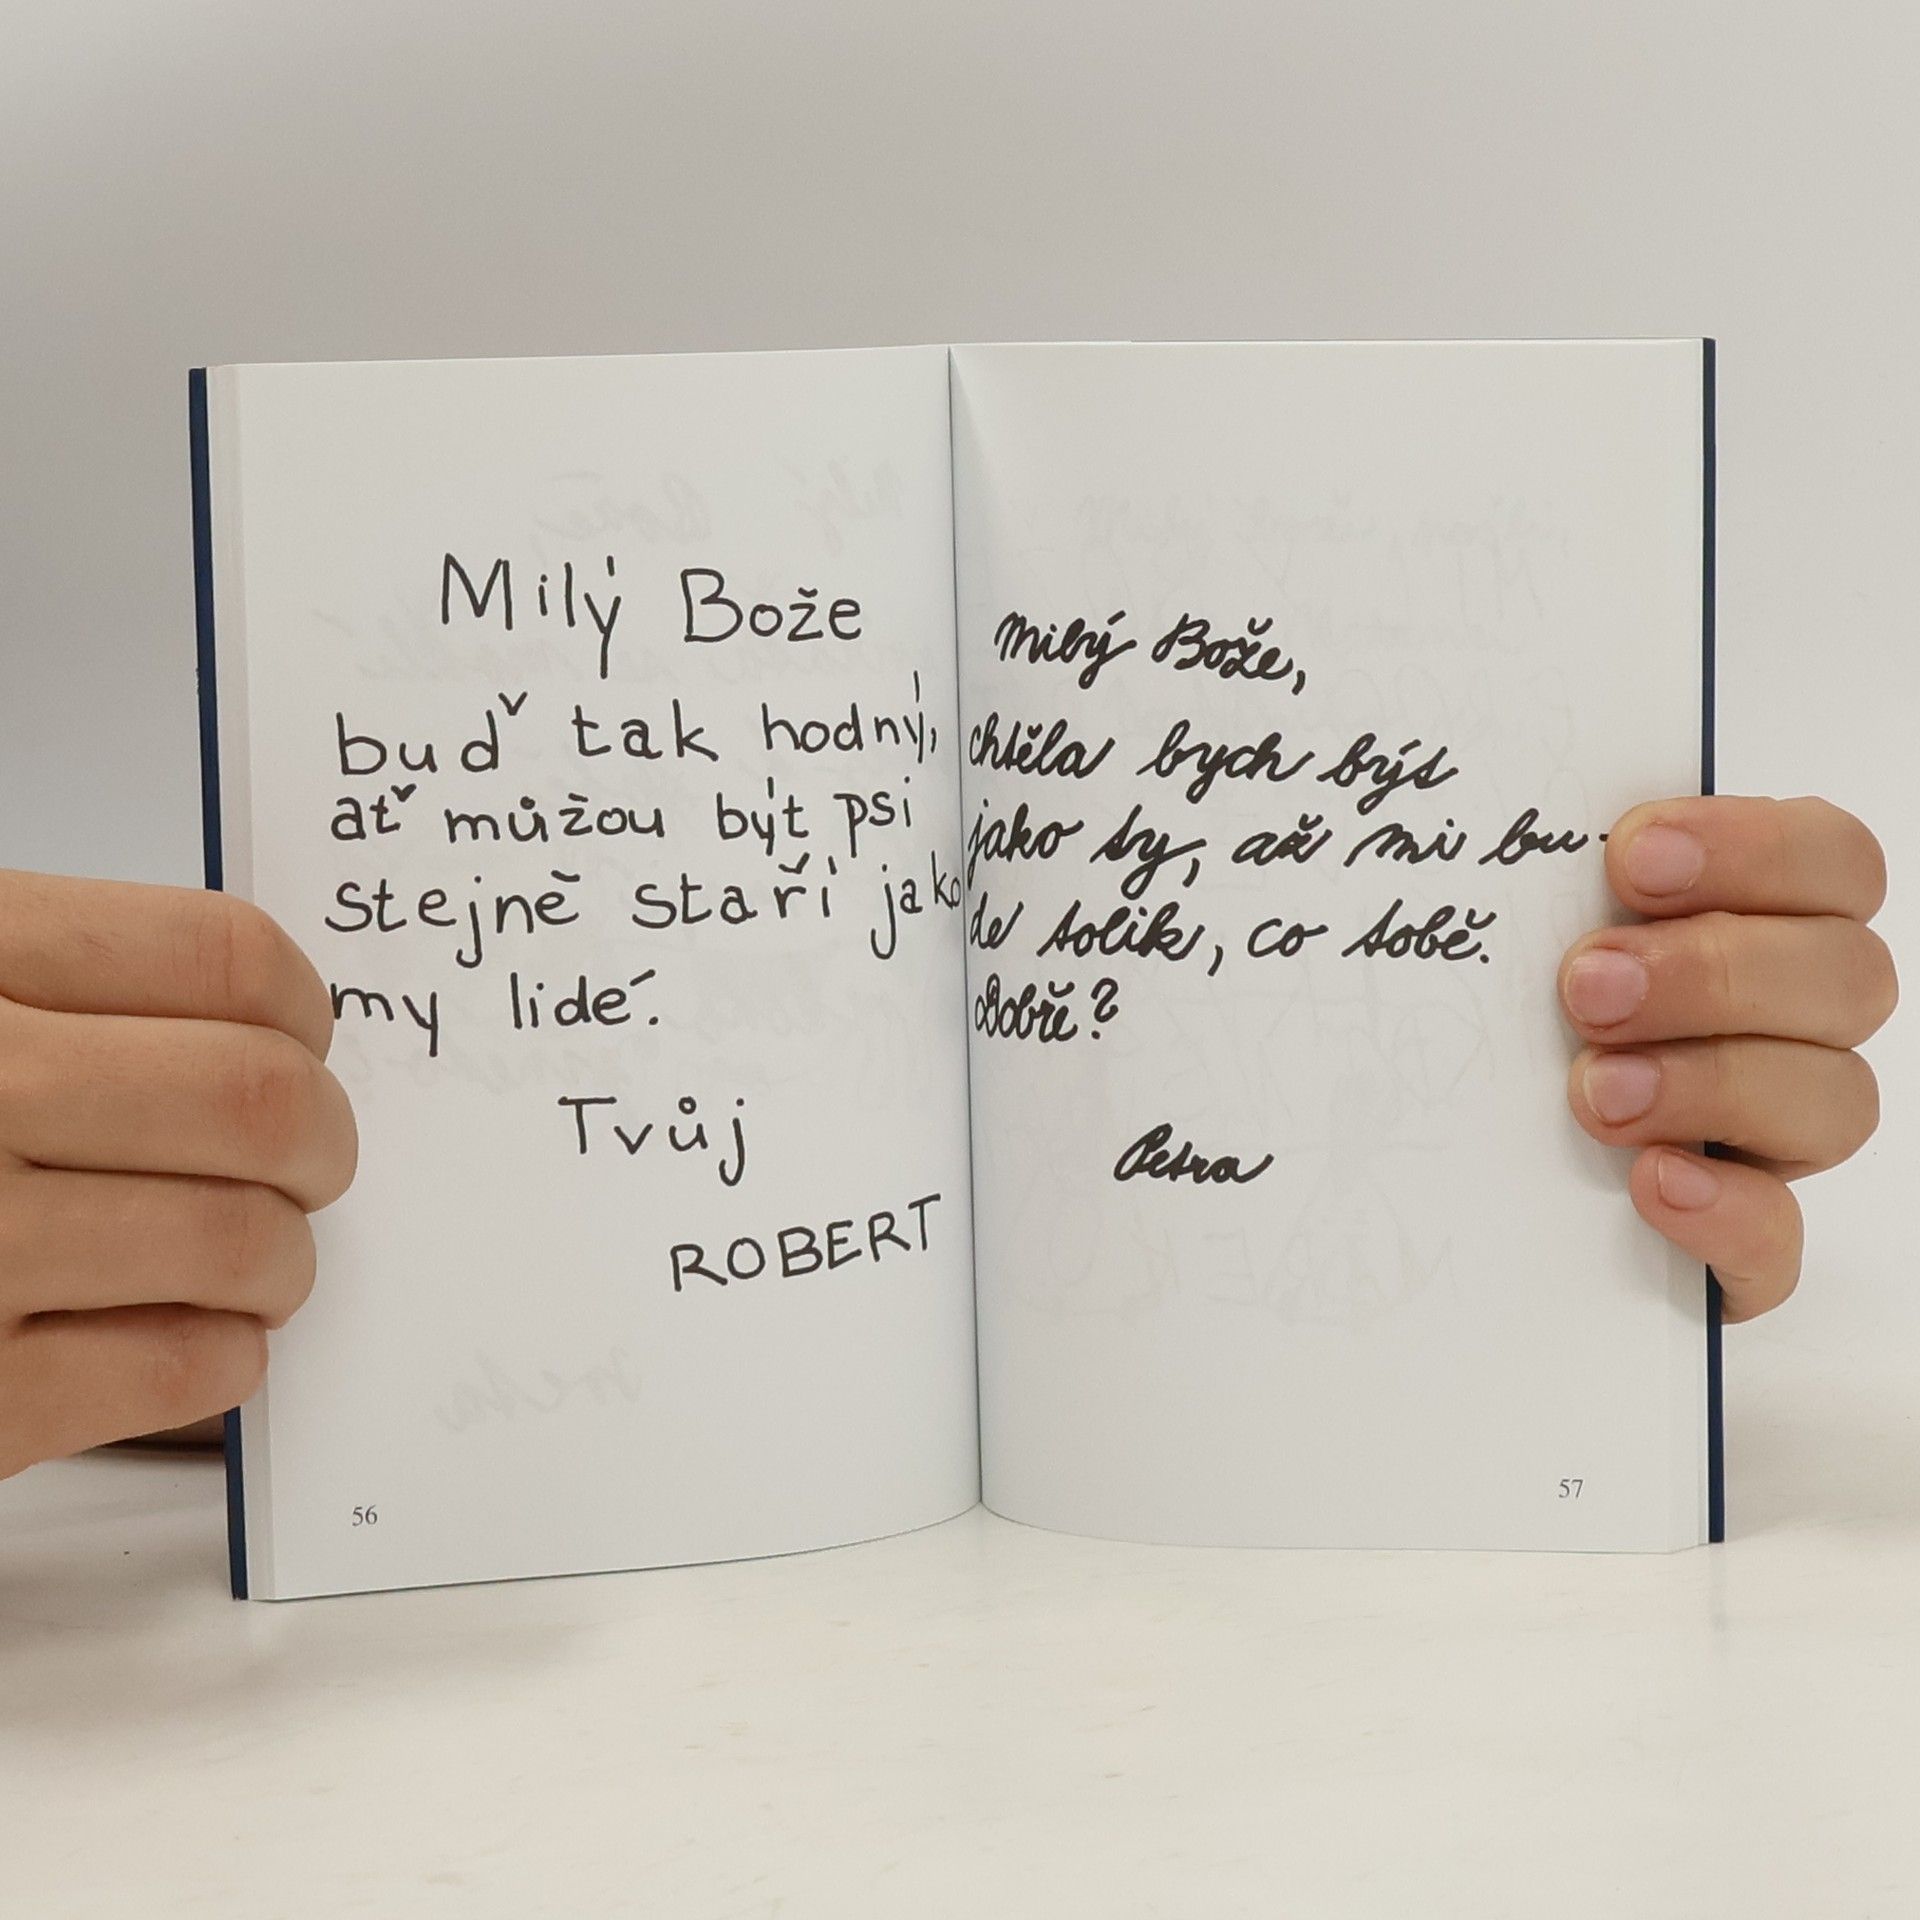 Milý Bože
buď tak hodný,
ať můžou být psi
stejně staří jako
my lidé.
Tvůj
ROBERT
56
Milý Bože,
chtěla bych být
jako ty, až mi bu-
de tolik, co tobě.
Dobře?
Petra
57